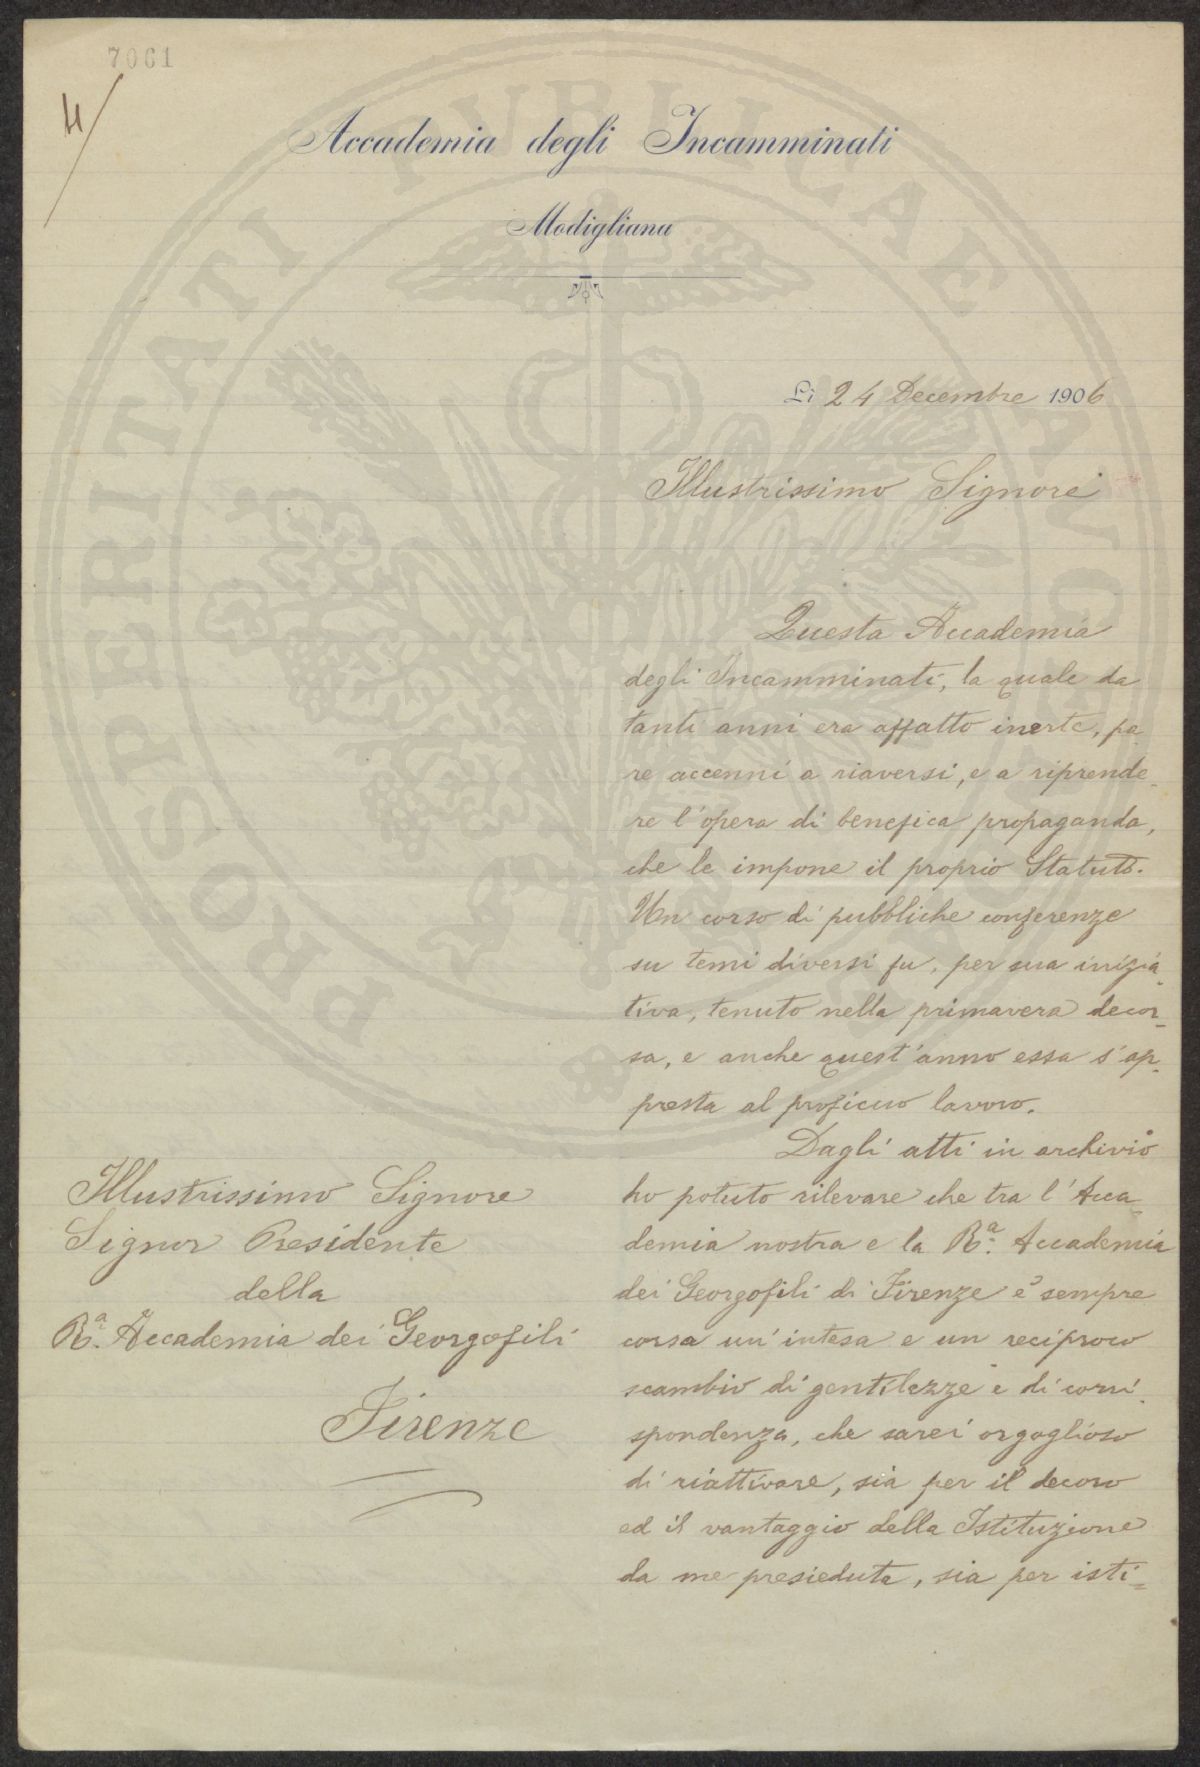 7061
4/
Accademia degli Incamminati
Modigliana
Li 24 Decembre 1906
Illustrissimo Signore
Questa Accademia
degli Incamminati, la quale da
tanti anni era affatto inerte, pa-
re accenni a riaversi, e a riprende-
re l'opera di benefica propaganda,
che le impone il proprio Statuto.
Un corso di pubbliche conferenze
su temi diversi fu, per sua inizia-
tiva, tenuto nella primavera decor-
sa, e anche quest'anno essa s'ap-
presta al proficuo lavoro.
Dagli atti in archivio
ho potuto rilevare che tra l'Acca-
demia nostra e la R.a Accademia
dei Georgofili di Firenze è sempre
corsa un'intesa e un reciproco
scambio di gentilezze e di corri-
spondenza, che sarei orgoglioso
di riattivare, sia per il decoro
ed il vantaggio della Istituzione
da me presieduta, sia per isti=
Illustrissimo Signore
Signor Presidente
della
R.a Accademia dei Georgofili
Firenze
PROSPERITATI PVBLICAE AVGENDAE